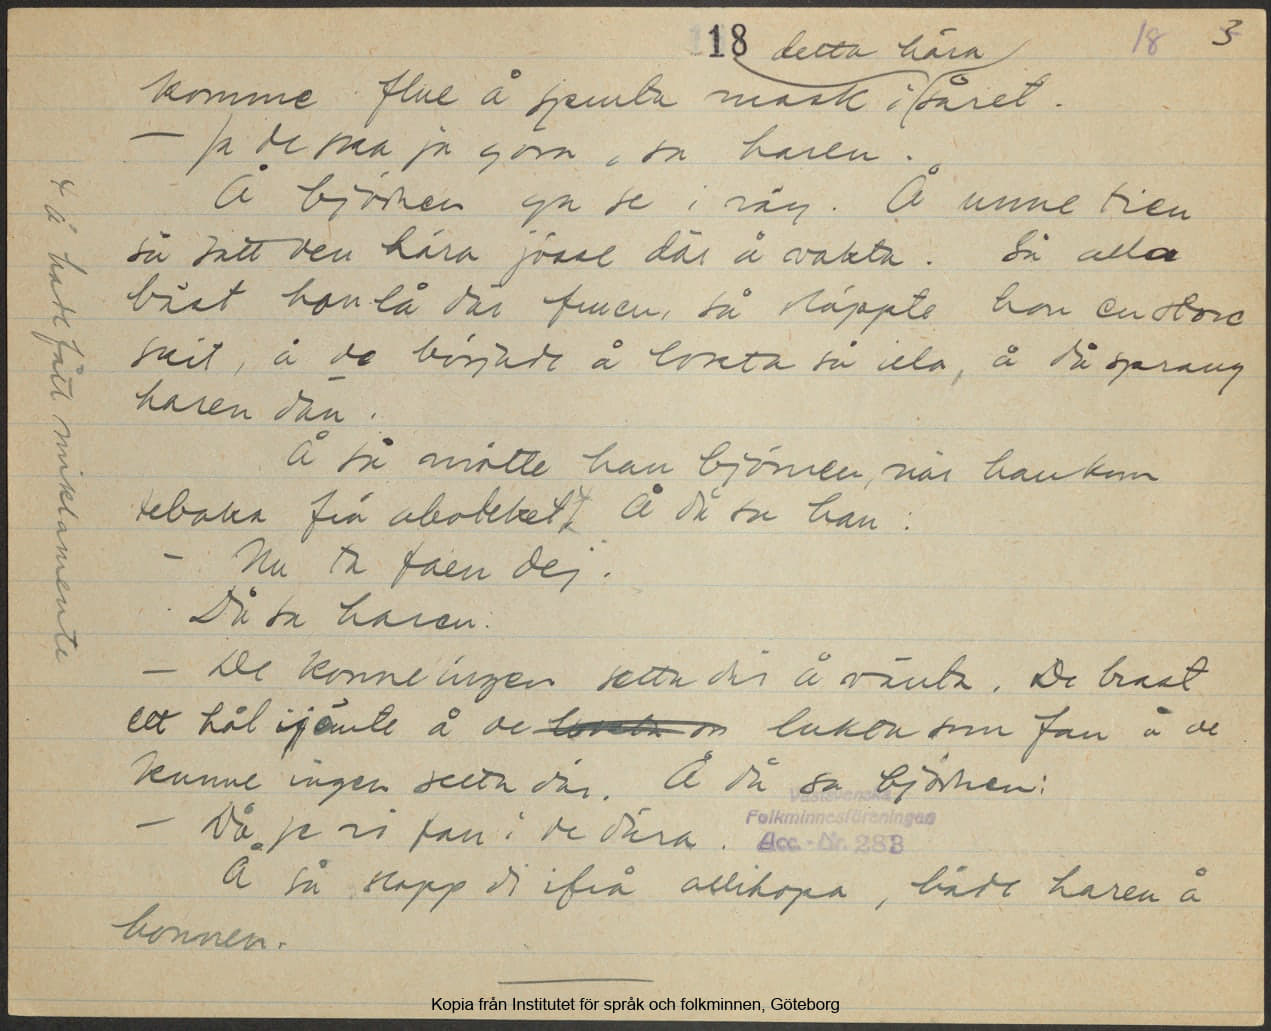 18 18 3
detta hära
komme flue å spruta mask i såret.
— Ja de ska ja göra, sa haren.
Å björnen ga se i väg. Å unne tien
så satt den hära jösse där å vakta. Så alla
bäst han lå där fruen, så släppte han en store
skit, å de började å lokta så illa, å då sprang
haren dän.
Å så mötte han björnen, när han kom
tebaka frå aboteket. + Å då sa han:
— Nu ta faen dej.
Då sa haren:
— De konne ingen setta där å vänta. De brast
ett hål ijämte å de lukta som fan å de
kunne ingen setta där. Å då sa björnen:
— Då je vi fan i de dära.
Å så slapp di ifrå allihopa, både haren å
bonnen.
+ å hade fått miklamente
Västsvenska
Folkminnesföreningen
Acc. - Nr. 283
Kopia från Institutet för språk och folkminnen, Göteborg